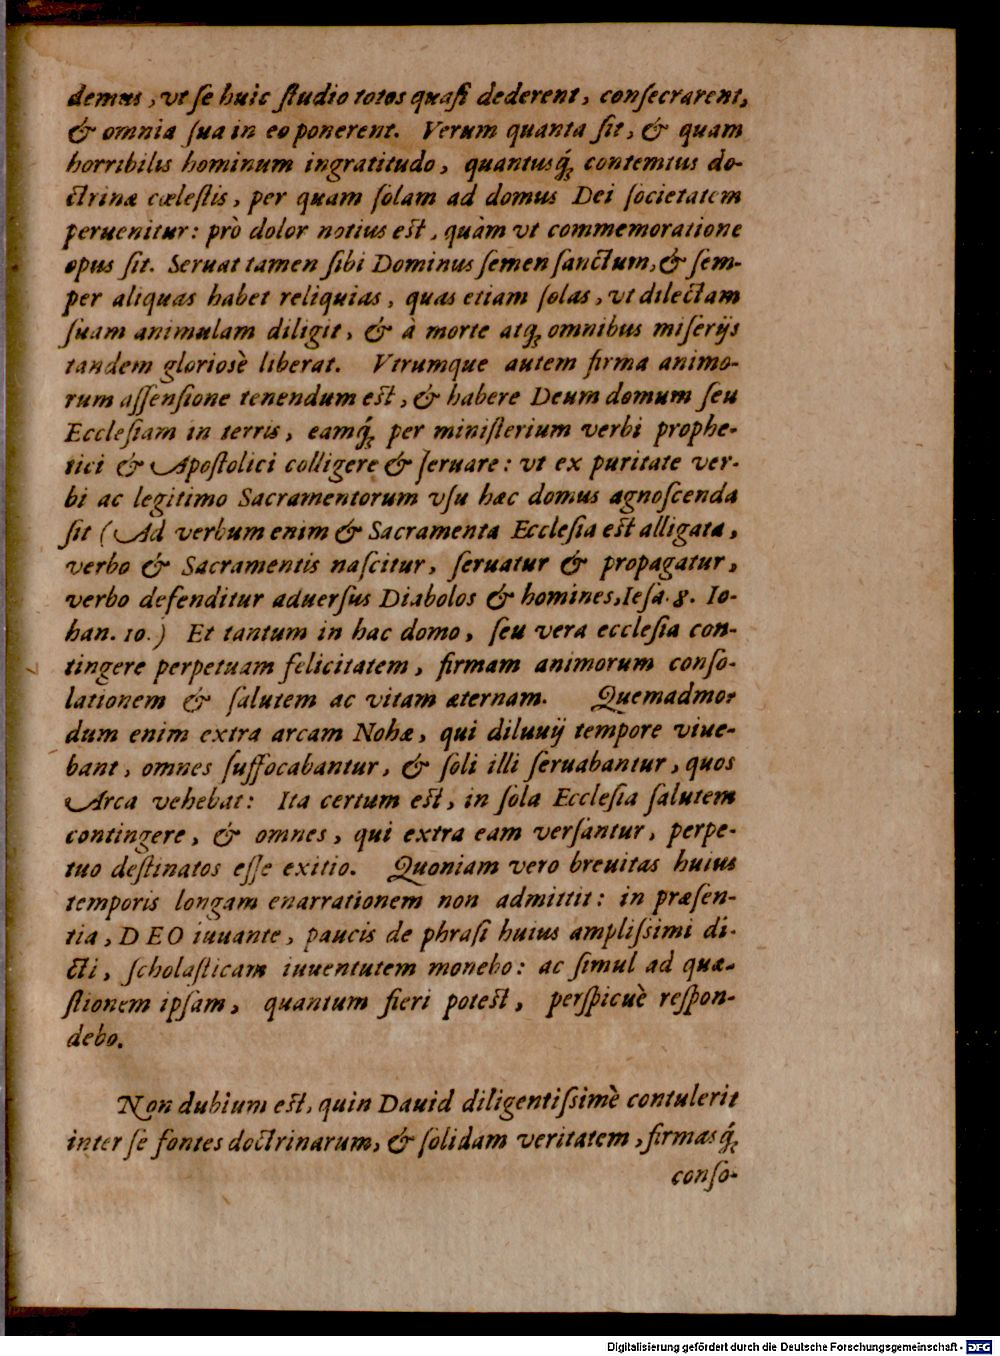 demus, vt se huic studio totos quasi dederent, consecrarent,
& omnia sua in eo ponerent. Verum quanta sit, & quam
horribilis hominum ingratitudo, quantusq́; contemtus do-
ctrinæ cœlestis, per quam solam ad domus Dei societatem
peruenitur: prò dolor notius est, quàm vt commemoratione
opus sit. Seruat tamen sibi Dominus semen sanctum, & sem-
per aliquas habet reliquias, quas etiam solas, vt dilectam
suam animulam diligit, & à morte atq; omnibus miserijs
tandem gloriosè liberat. Vtrumque autem firma animo-
rum assensione tenendum est, & habere Deum domum seu
Ecclesiam in terris, eamq́; per ministerium verbi prophe-
tici & Apostolici colligere & seruare: vt ex puritate ver-
bi ac legitimo Sacramentorum vsu hæc domus agnoscenda
sit (Ad verbum enim & Sacramenta Ecclesia est alligata,
verbo & Sacramentis nascitur, seruatur & propagatur,
verbo defenditur aduersus Diabolos & homines, Iesa. 8. Io-
han. 10.) Et tantum in hac domo, seu vera ecclesia con-
tingere perpetuam felicitatem, firmam animorum conso-
lationem & salutem ac vitam æternam. Quemadmo-
dum enim extra arcam Nohæ, qui diluuij tempore viue-
bant, omnes suffocabantur, & soli illi seruabantur, quos
Arca vehebat: Ita certum est, in sola Ecclesia salutem
contingere, & omnes, qui extra eam versantur, perpe-
tuo destinatos esse exitio. Quoniam vero breuitas huius
temporis longam enarrationem non admittit: in præsen-
tia, DEO iuuante, paucis de phrasi huius amplissimi di-
cti, scholasticam iuuentutem monebo: ac simul ad quæ-
stionem ipsam, quantum fieri potest, perspicuè respon-
debo.
Non dubium est, quin Dauid diligentissimè contulerit
inter se fontes doctrinarum, & solidam veritatem, firmasq́;
conso-
Digitalisierung gefördert durch die Deutsche Forschungsgemeinschaft - DFG